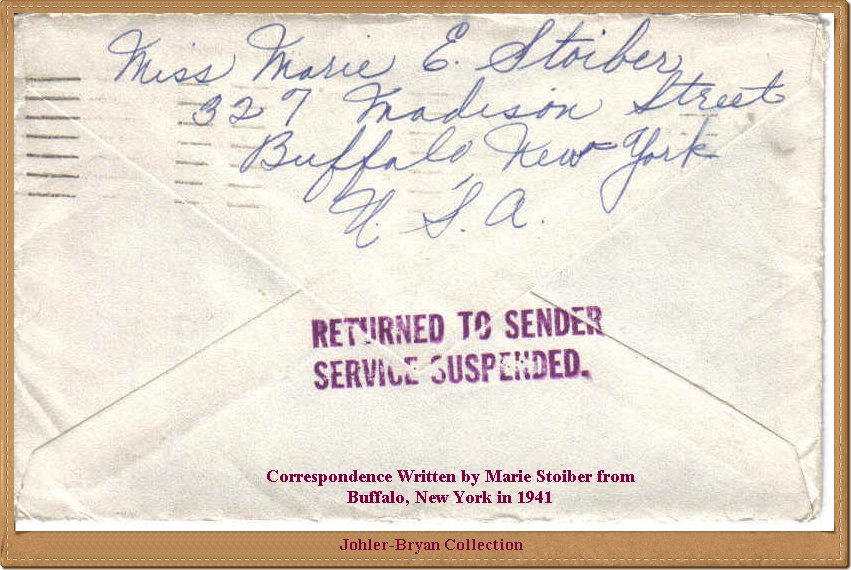 Miss Marie E. Stoiber
327 Madison Street
Buffalo, New York
U. S. A.
RETURNED TO SENDER
SERVICE SUSPENDED.
Correspondence Written by Marie Stoiber from
Buffalo, New York in 1941
Johler-Bryan Collection